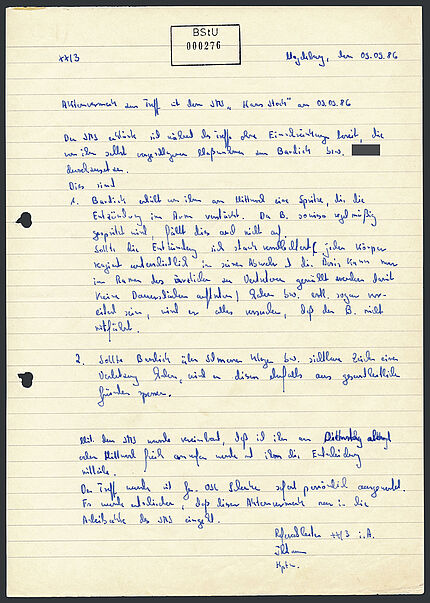 BStU
000276
XX/3 Magdeburg, den 03.09.86
Aktenvermerk zum Treff mit dem IMS „Hans Stock" am 03.09.86
Der IMS erklärte sich während des Treffs ohne Einschränkung bereit, die
von ihm selbst vorgeschlagenen Maßnahmen zum Berdich bzw.
durchzusetzen.
Dies sind
1. erhält von ihm am Mittwoch eine Spritze, die die
Entzündung im Arme verstärkt. Da B. sowieso regelmäßig
gespritzt wird, fällt dies auch nicht auf.
Sollte die Entzündung sich stark verschlechtert (jeder Körper
reagiert unterschiedlich in seiner Abwehr u. die Dosis kann nur
im Rahmen des ärztlichen zu Vertretenen gewählt werden damit
keine Dauerschäden auftreten) haben bzw. evtl. sogar
sein, wird er alles versuchen, daß der B. nicht
mitfährt.
2. Sollte über Schmerzen klagen bzw. sichtbare Zeichen einer
Verletzung haben, wird er diesen ebenfalls aus gesundheitlichen
Gründen sperren.
Mit dem IMS wurde vereinbart, daß ich ihn am Dienstag abend
oder Mittwoch früh anrufen werde und ihm die Entscheidung
mitteile.
Der Treff wurde mit Gen. OSL sofort persönlich ausgewertet.
Es wurde entschieden, daß dieser Aktenvermerk nur in die
Arbeitsakte des IMS eingeht.
Referatsleiter XX/3 i.A.
Hptm.